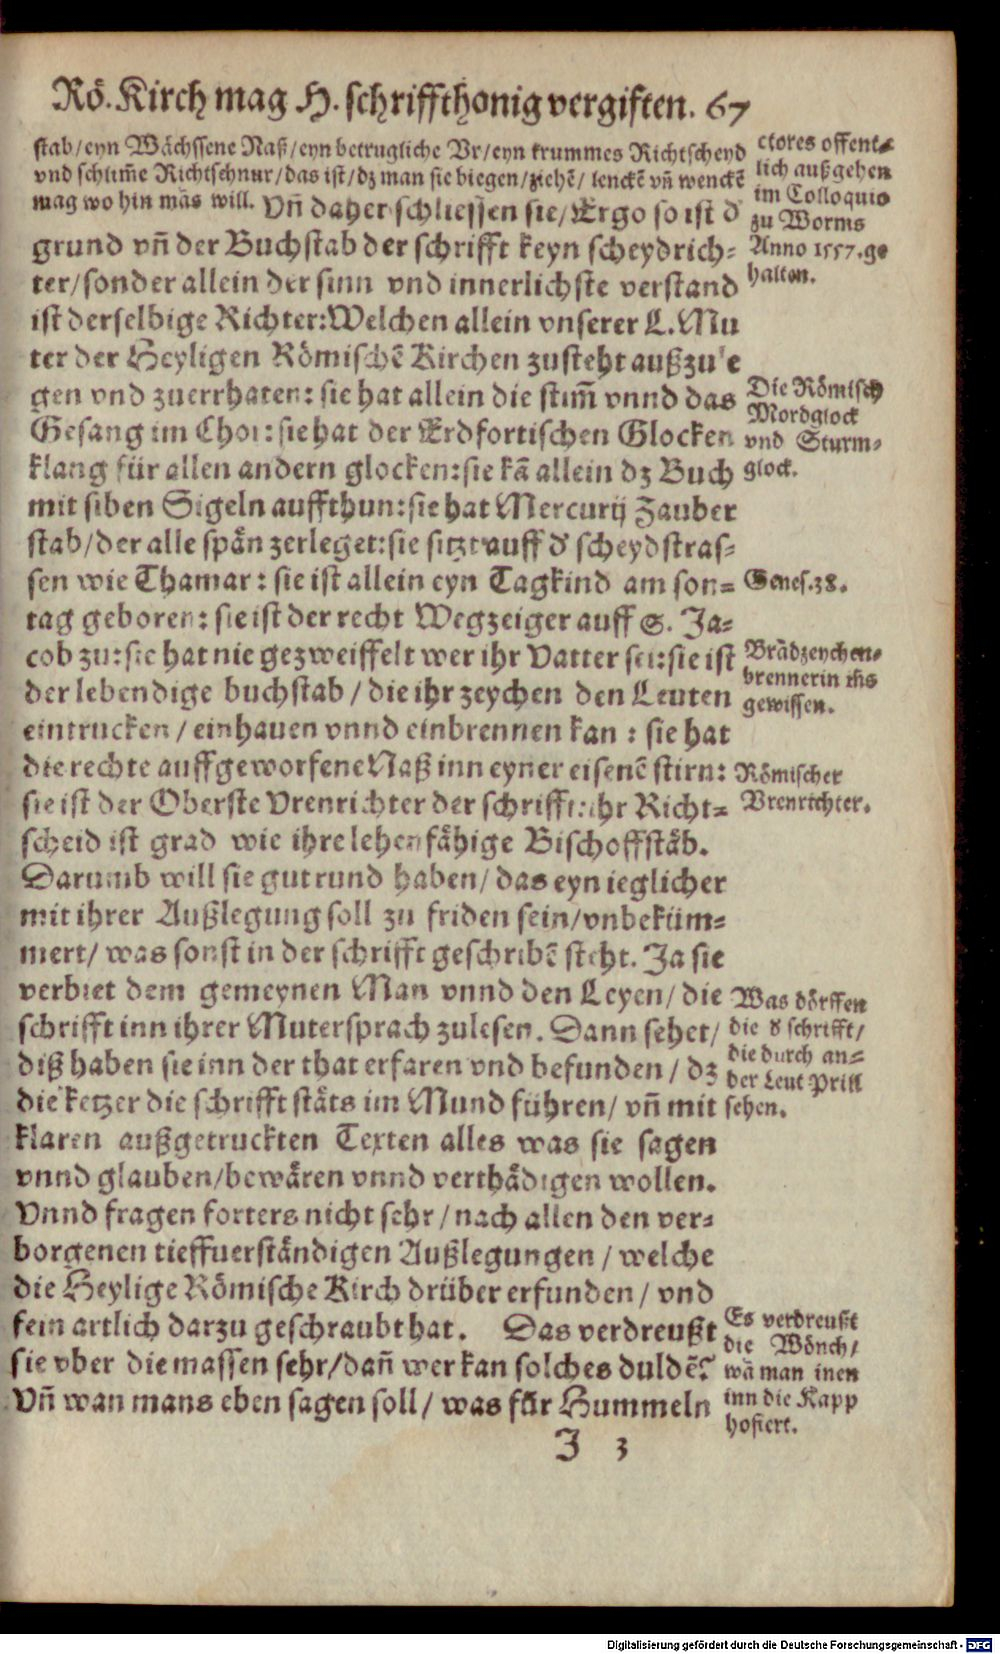 Rö. Kirch mag H. schriffthonig vergiften. 67
stab/eyn Wächssene Naß/eyn betrugliche Vr/eyn krummes Richtscheyd
vnd schlim̃e Richtschnur/das ist/dz man sie biegen/ziehẽ/lenckẽ vñ wenckẽ
mag wo hin mãs will. Vñ daher schliessen sie/Ergo so ist d'
grund vñ der Buchstab der schrifft keyn scheydrich=
ter/sonder allein der sinn vnd innerlichste verstand
ist derselbige Richter:Welchen allein vnserer L. Mu
ter der Heyligen Römischẽ Kirchen zusteht
gen vnd zuerrhaten: sie hat allein die stim̃ vnnd das
Gesang im Chor: sie hat der Erdfortischen Glocken
klang für allen andern glocken:sie kã allein dz Buch
mit siben Sigeln auffthun:sie hat Mercurij Zauber
stab/der alle spän zerleget:sie sitzt auff d' scheydstras=
sen wie Thamar: sie ist allein eyn Tagkind am son=
tag geboren: sie ist der recht Wegzeiger auff S. Ja=
cob zu:sie hat nie gezweiffelt wer ihr Vatter sei:sie ist
der lebendige buchstab/die ihr zeychen den Leuten
eintrucken/einhauen vnnd einbrennen kan: sie hat
die rechte auffgeworfene Naß inn eyner eisenẽ stirn:
sie ist der Oberste Vrenrichter der schrifft:ihr Richt=
scheid ist grad wie ihre lehenfähige Bischoffstäb.
Darumb will sie gut rund haben/das eyn ieglicher
mit ihrer Außlegung soll zu friden sein/vnbeküm=
mert/was sonst in der schrifft geschribẽ steht. Ja sie
verbiet dem gemeynen Man vnnd den Leyen/die
schrifft inn ihrer Mutersprach zulesen. Dann sehet/
diß haben sie inn der that erfaren vnd befunden/dz
die ketzer die schrifft stäts im Mund führen/vñ mit
klaren außgetruckten Texten alles was sie sagen
vnnd glauben/bewären vnnd verthädigen wollen.
Vnnd fragen forters nicht sehr/nach allen den ver=
borgenen tieffuerständigen Außlegungen/welche
die Heylige Römische Kirch drüber erfunden/vnd
fein artlich darzu geschraubt hat. Das verdreußt
sie vber die massen sehr/dañ wer kan solches duldẽ?
Vñ wan mans eben sagen soll/was für Hummeln
J 3
ctores offent=
lich außgehen
im Colloquio
zu Worms
Anno 1557.ge
halten.
Die Römisch
Mordglock
vnd Sturm=
glock.
Genes.38.
Brãdzeychen=
brennerin
gewissen.
Römischer
Vrenrichter.
Was dörffen
die d' schrifft/
die durch an=
der Leut Prill
sehen.
Es verdreußt
die Mönch/
wã man inen
inn die Kapp
hofiert.
Digitalisierung gefördert durch die Deutsche Forschungsgemeinschaft - DFG